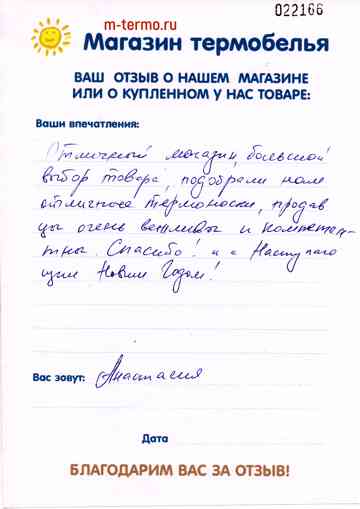 022166
m-termo.ru
Магазин термобелья
ВАШ ОТЗЫВ О НАШЕМ МАГАЗИНЕ
ИЛИ О КУПЛЕННОМ У НАС ТОВАРЕ:
Ваши впечатления:
Отличный магазин, большой
выбор товара, подобрали нам
отличное термоноски, продав
цы очень вежливы и компетен-
тны. Спасибо! и с Наступаю
щим Новым Годом!
Вас зовут: Анастасия
Дата
БЛАГОДАРИМ ВАС ЗА ОТЗЫВ!